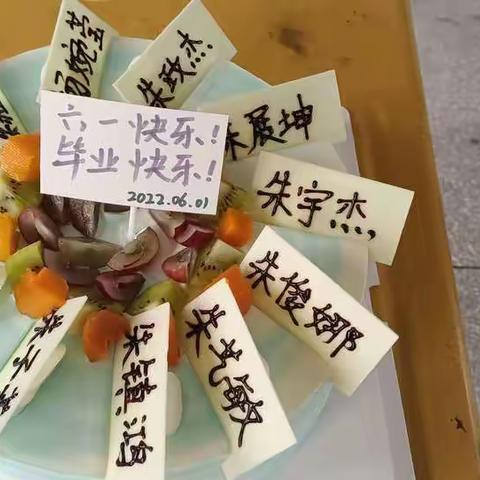 六一快乐!
毕业快乐!
2022.06.01
朱政杰
朱展坤
朱宇杰
朱俊娜
朱芃敏
朱镇鸿